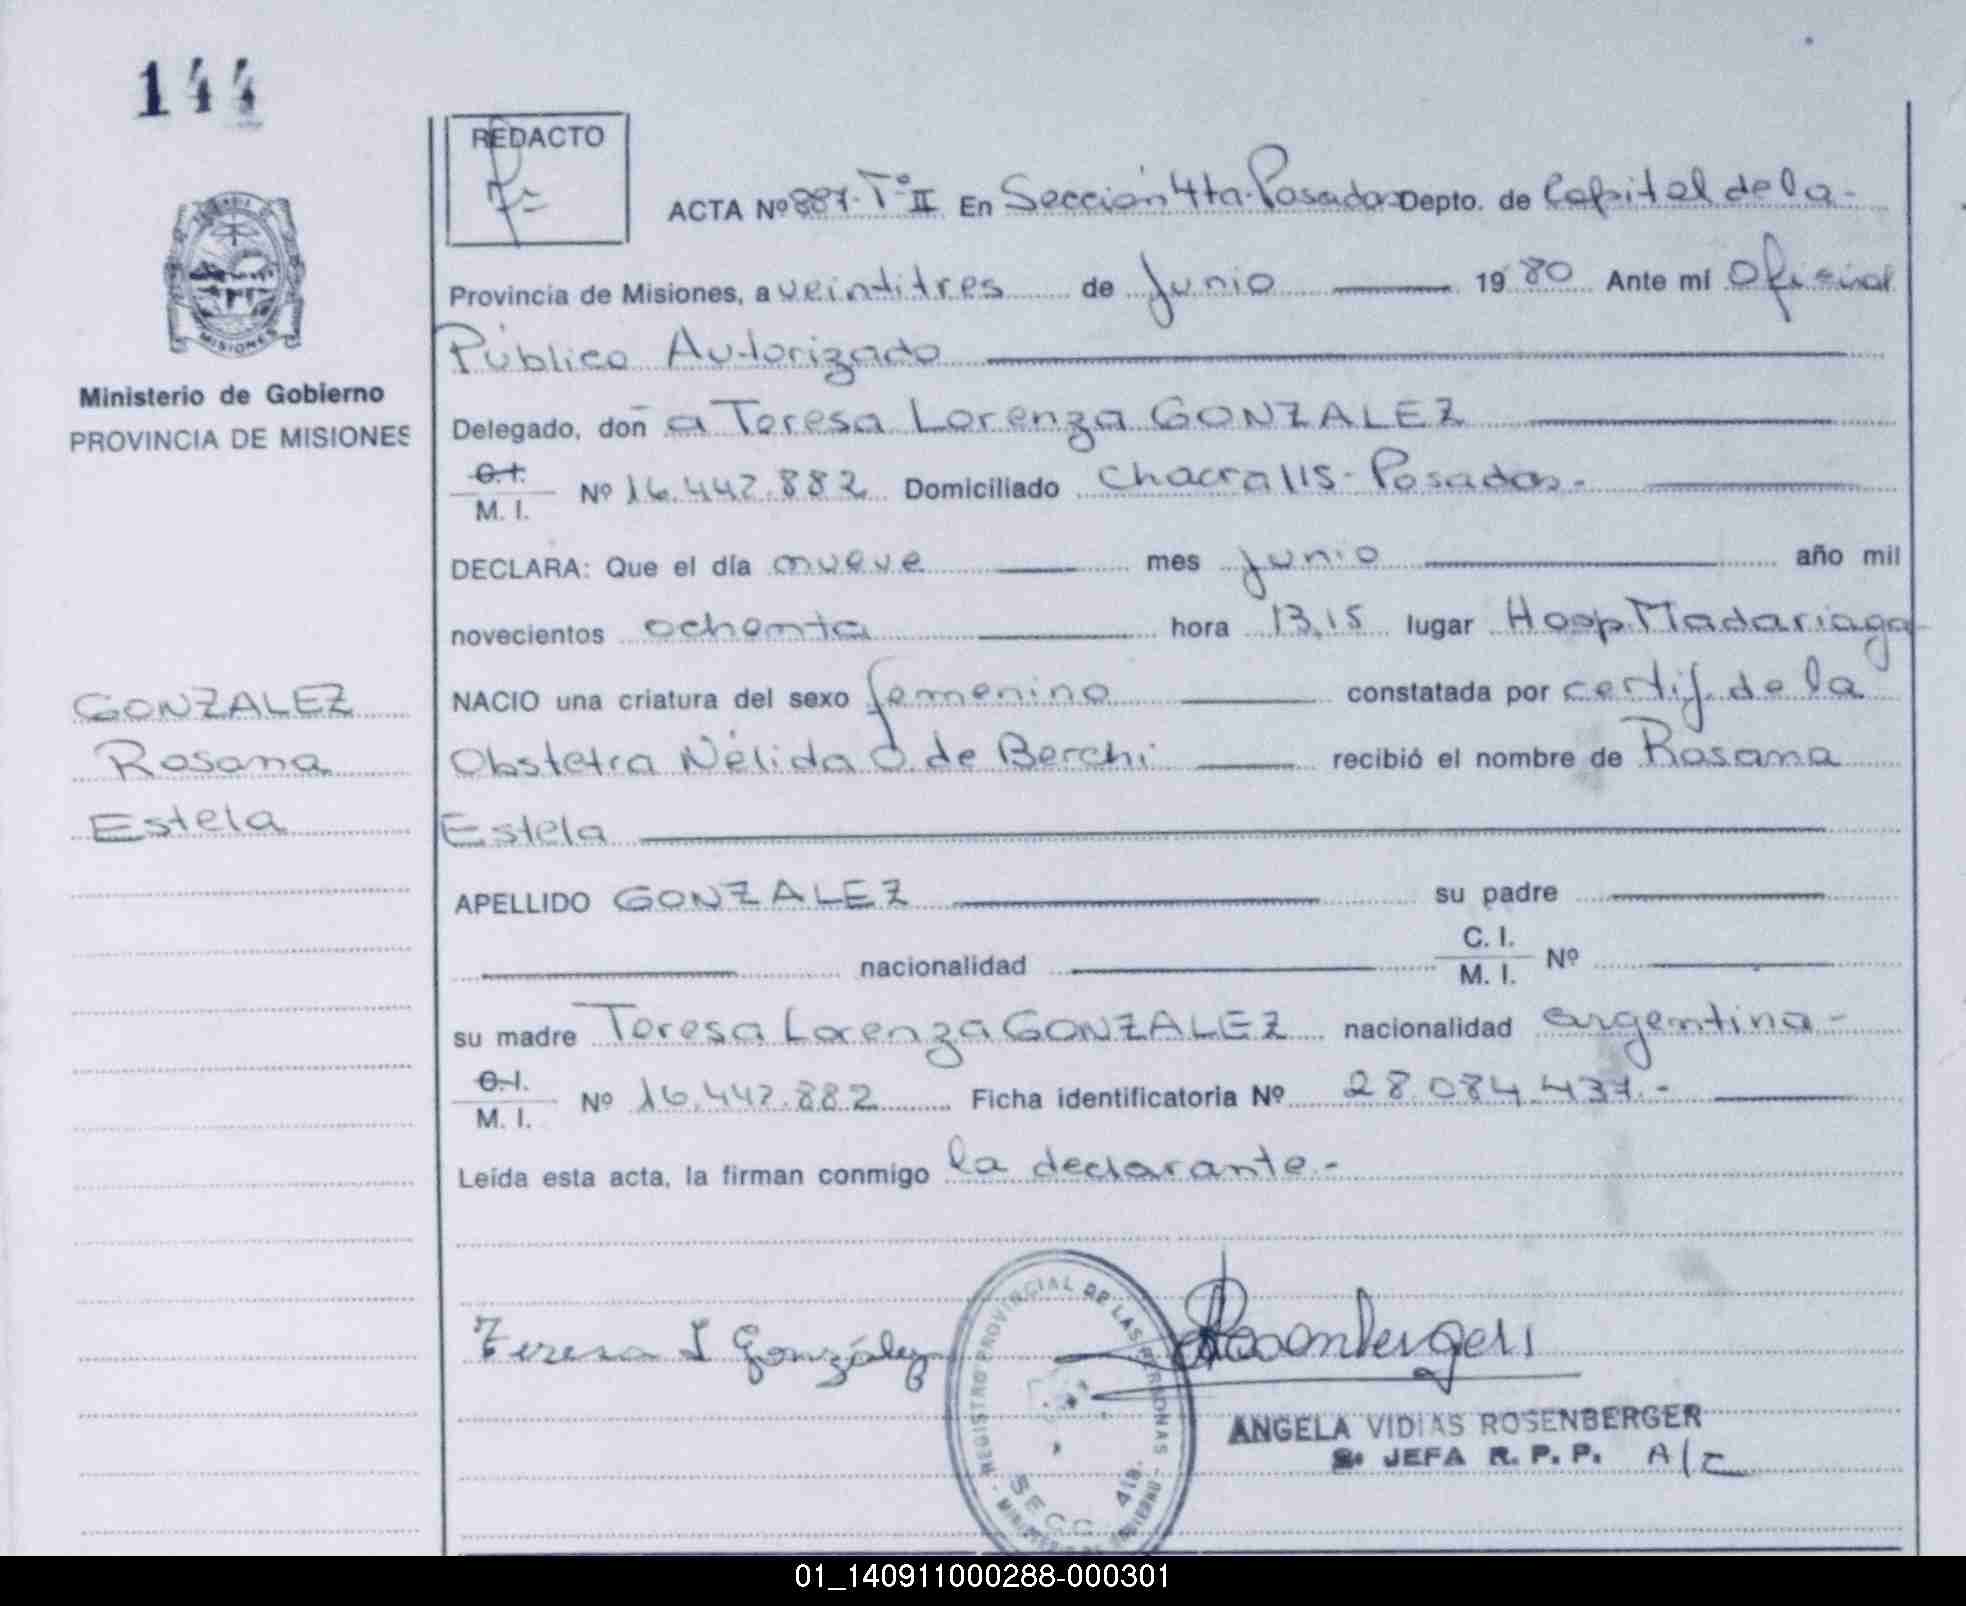 144
REDACTO
ACTA Nº 887-Tº II En Sección 4ta-Posadas Depto. de Capital de la-
Provincia de Misiones, a veintitres de Junio 1980 Ante mí Oficial
Público Autorizado
Ministerio de Gobierno
PROVINCIA DE MISIONES
Delegado, doña Teresa Lorenza GONZALEZ
C.I. M. I. Nº 16.447.882 Domiciliado Chacra 115-Posadas-
DECLARA: Que el día nueve mes junio año mil
novecientos ochenta hora 13,15 lugar Hosp. Madariaga
GONZALEZ
Rosana
Estela
NACIO una criatura del sexo femenino constatada por certif. de la
Obstetra Nélida O. de Berchi recibió el nombre de Rosana
Estela
APELLIDO GONZALEZ su padre
nacionalidad C. I. M. I. Nº
su madre Teresa Lorenza GONZALEZ nacionalidad argentina-
C.I. M. I. Nº 16.447.882 Ficha identificatoria Nº 28.084.437.-
Leída esta acta, la firman conmigo la declarante.-
Teresa L González
REGISTRO PROVINCIAL DE LAS PERSONAS
SECC. 4ta.
ANGELA VIDIAS ROSENBERGER
JEFA R. P. P. A/C
01_140911000288-000301